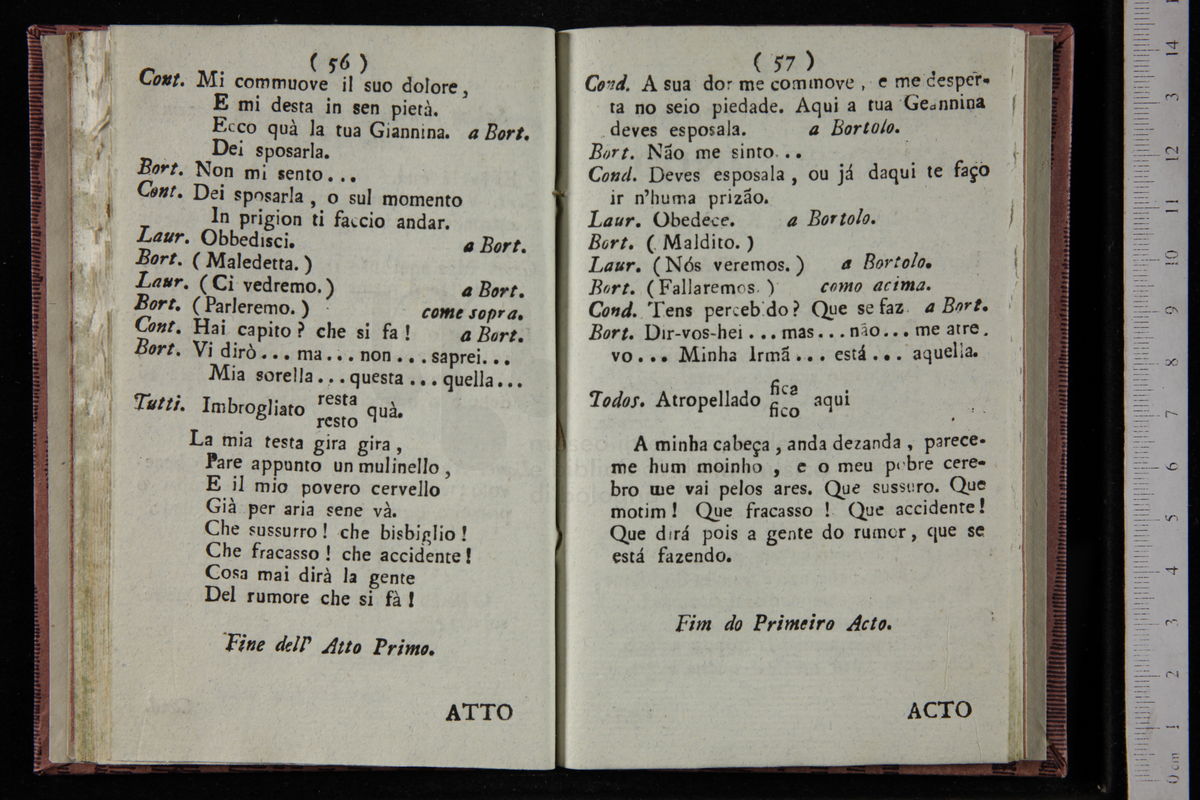 ( 56 )
Cont. Mi commuove il suo dolore,
E mi desta in sen pietà.
Ecco quà la tua Giannina. a Bort.
Dei sposarla.
Bort. Non mi sento...
Cont. Dei sposarla, o sul momento
In prigion ti faccio andar.
Laur. Obbedisci. a Bort.
Bort. (Maledetta.)
Laur. (Ci vedremo.) a Bort.
Bort. (Parleremo.) come sopra.
Cont. Hai capito? che si fa! a Bort.
Bort. Vi dirò... ma... non... saprei...
Mia sorella... questa... quella...
Tutti. Imbrogliato resta quà.
resto
La mia testa gira gira,
Pare appunto un mulinello,
E il mio povero cervello
Già per aria sene và.
Che sussurro! che bisbiglio!
Che fracasso! che accidente!
Cosa mai dirà la gente
Del rumore che si fà!
Fine dell' Atto Primo.
ATTO
( 57 )
Cond. A sua dor me commove, e me desper-
ta no seio piedade. Aqui a tua Geannina
deves esposala. a Bortolo.
Bort. Não me sinto...
Cond. Deves esposala, ou já daqui te faço
ir n'huma prizão.
Laur. Obedece. a Bortolo.
Bort. (Maldito.)
Laur. (Nós veremos.) a Bortolo.
Bort. (Fallaremos.) como acima.
Cond. Tens percebido? Que se faz. a Bort.
Bort. Dir-vos-hei... mas... não... me atre.
vo... Minha Irmã... está... aquella.
Todos. Atropellado fica aqui
fico
A minha cabeça, anda dezanda, parece-
me hum moinho, e o meu pobre cere-
bro me vai pelos ares. Que sussuro. Que
motim! Que fracasso! Que accidente!
Que dirá pois a gente do rumor, que se
está fazendo.
Fim do Primeiro Acto.
ACTO
14
13
12
11
10
9
8
7
6
5
4
3
2
1
0 cm